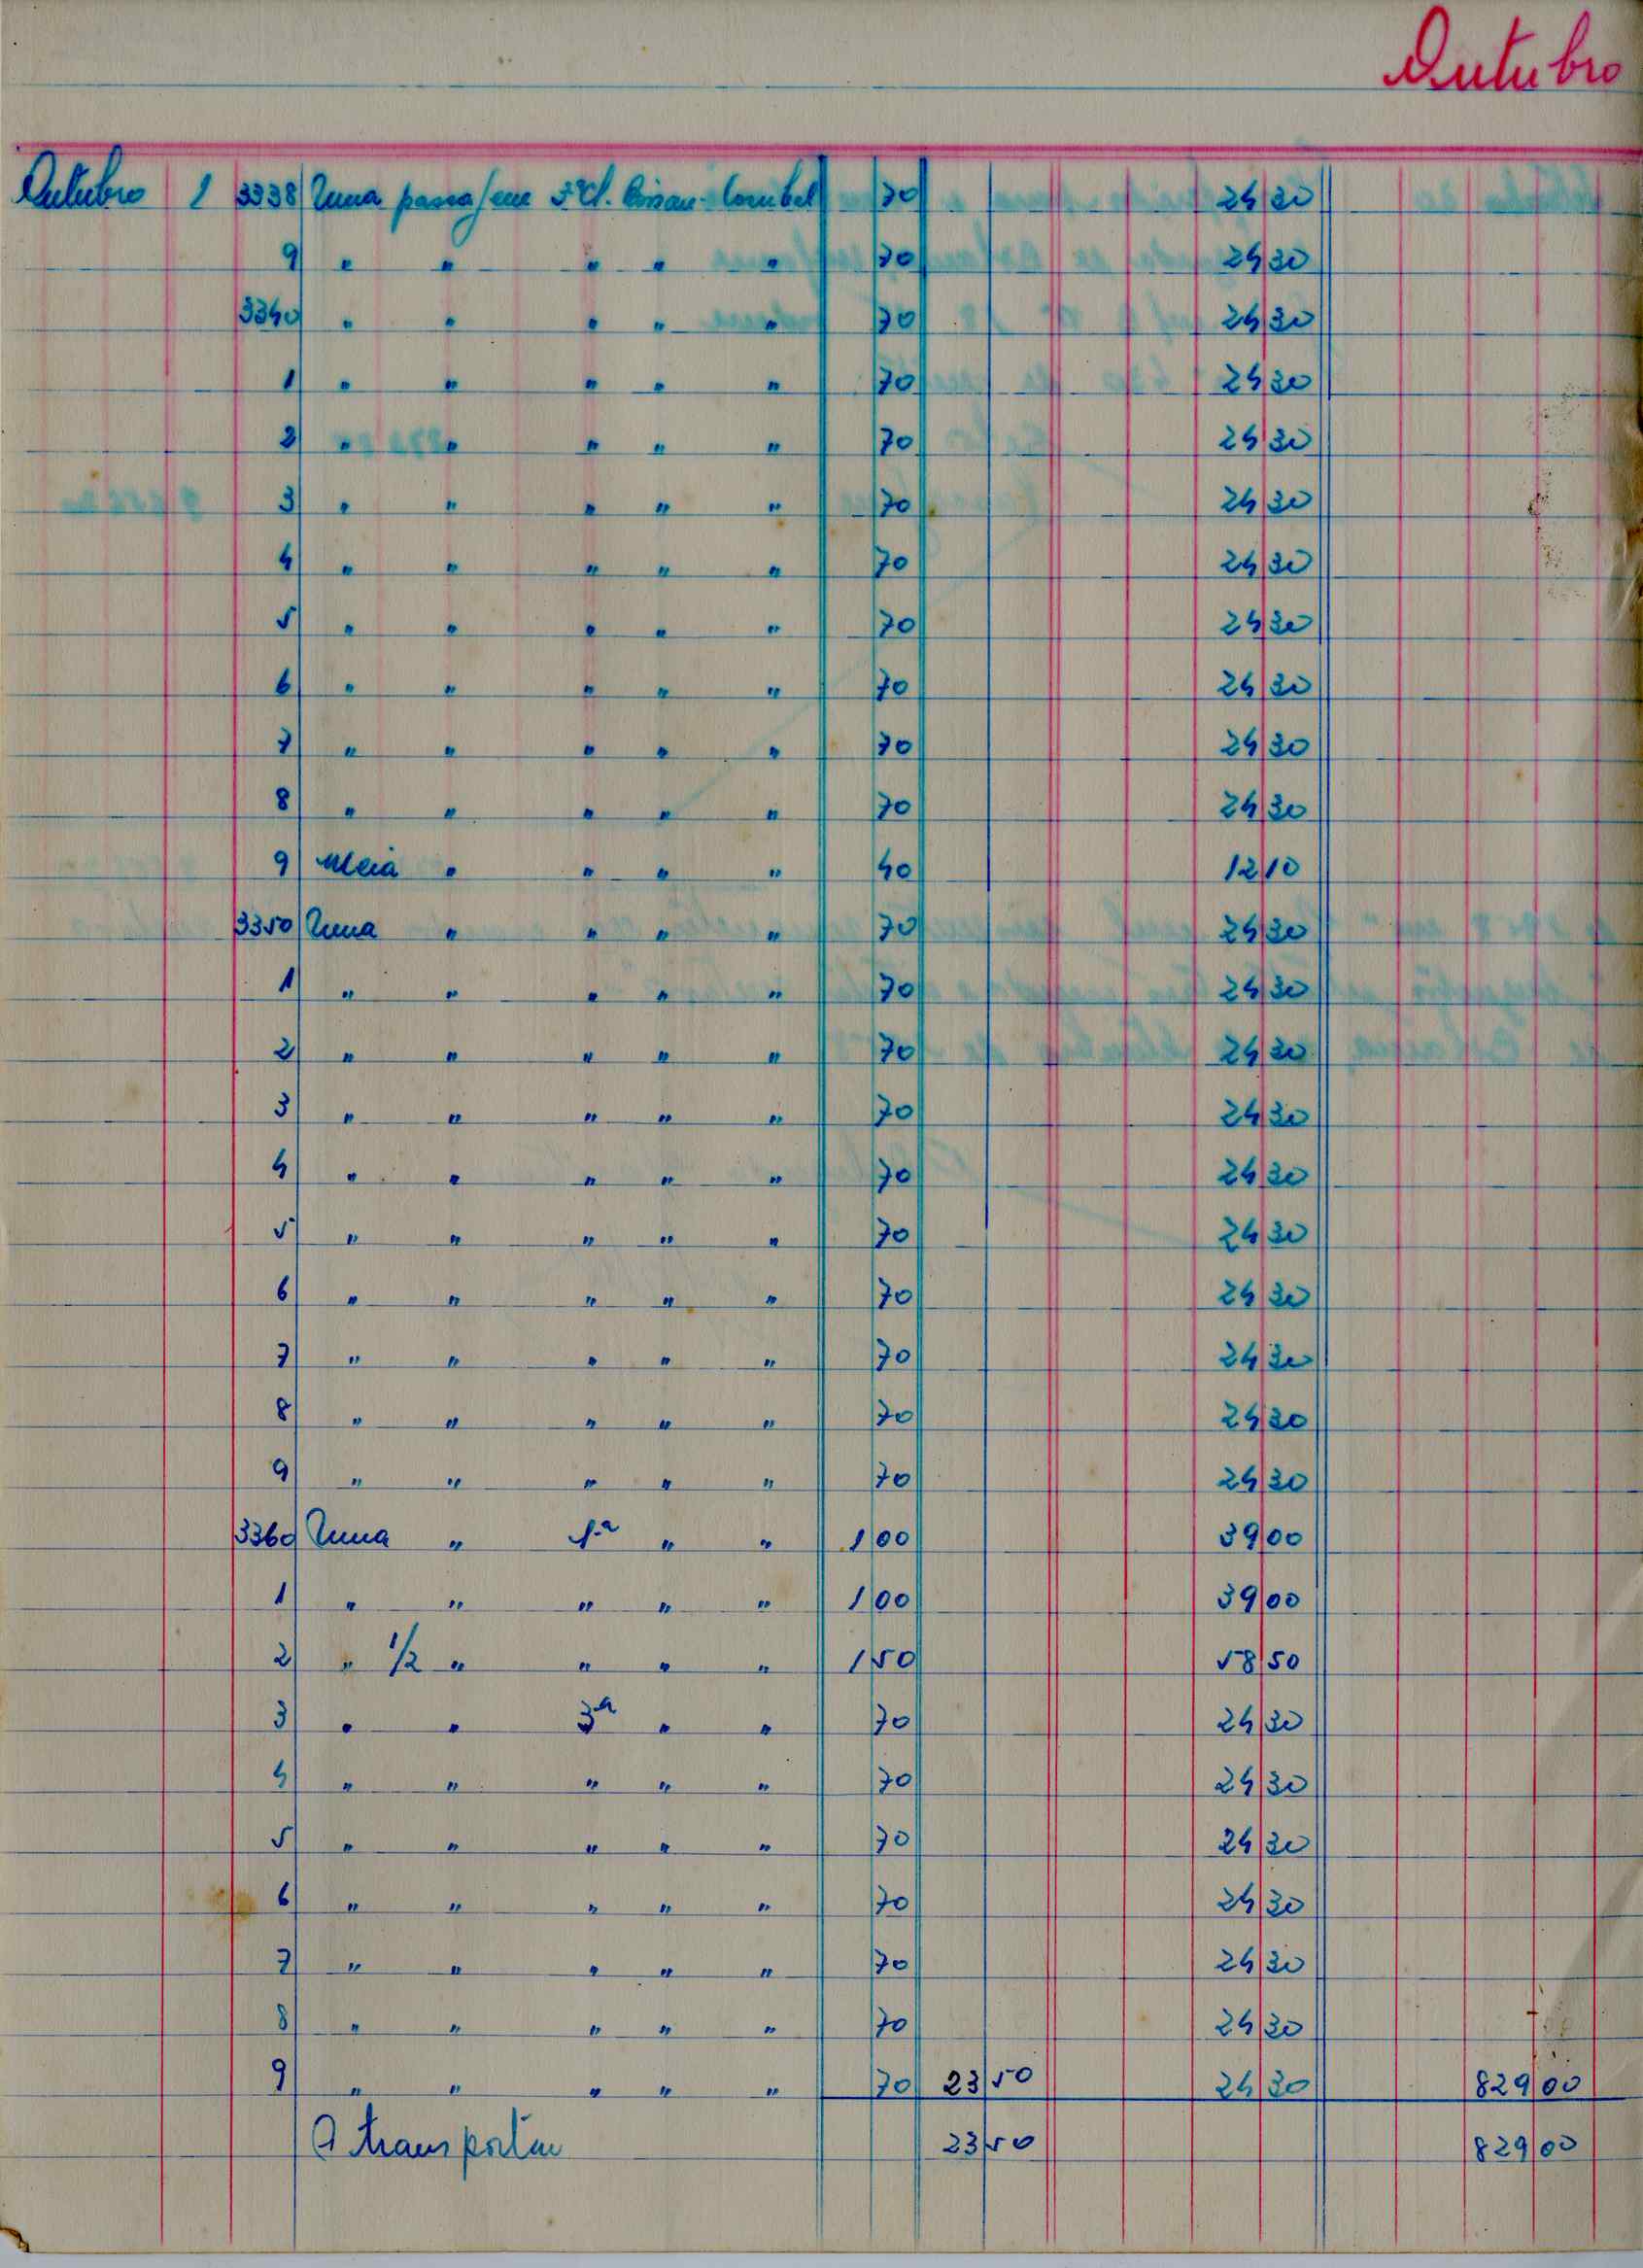 Outubro
Outubro 1 3338 Uma passagem 3ª Cl. Bissau-Corubal 70 24 30
9 " " " " " 70 24 30
3340 " " " " " 70 24 30
1 " " " " " 70 24 30
2 " " " " " 70 24 30
3 " " " " " 70 24 30
4 " " " " " 70 24 30
5 " " " " " 70 24 30
6 " " " " " 70 24 30
7 " " " " " 70 24 30
8 " " " " " 70 24 30
9 Meia " " " " 40 12 10
3350 Uma " " " " 70 24 30
1 " " " " " 70 24 30
2 " " " " " 70 24 30
3 " " " " " 70 24 30
4 " " " " " 70 24 30
5 " " " " " 70 24 30
6 " " " " " 70 24 30
7 " " " " " 70 24 30
8 " " " " " 70 24 30
9 " " " " " 70 24 30
3360 Uma " 1ª " " 1 00 39 00
1 " " " " " 1 00 39 00
2 " 1/2 " " " " 1 50 58 50
3 " " 3ª " " 70 24 30
4 " " " " " 70 24 30
5 " " " " " 70 24 30
6 " " " " " 70 24 30
7 " " " " " 70 24 30
8 " " " " " 70 24 30
9 " " " " " 70 23 50 24 30 829 00
A transportar 23 50 829 00